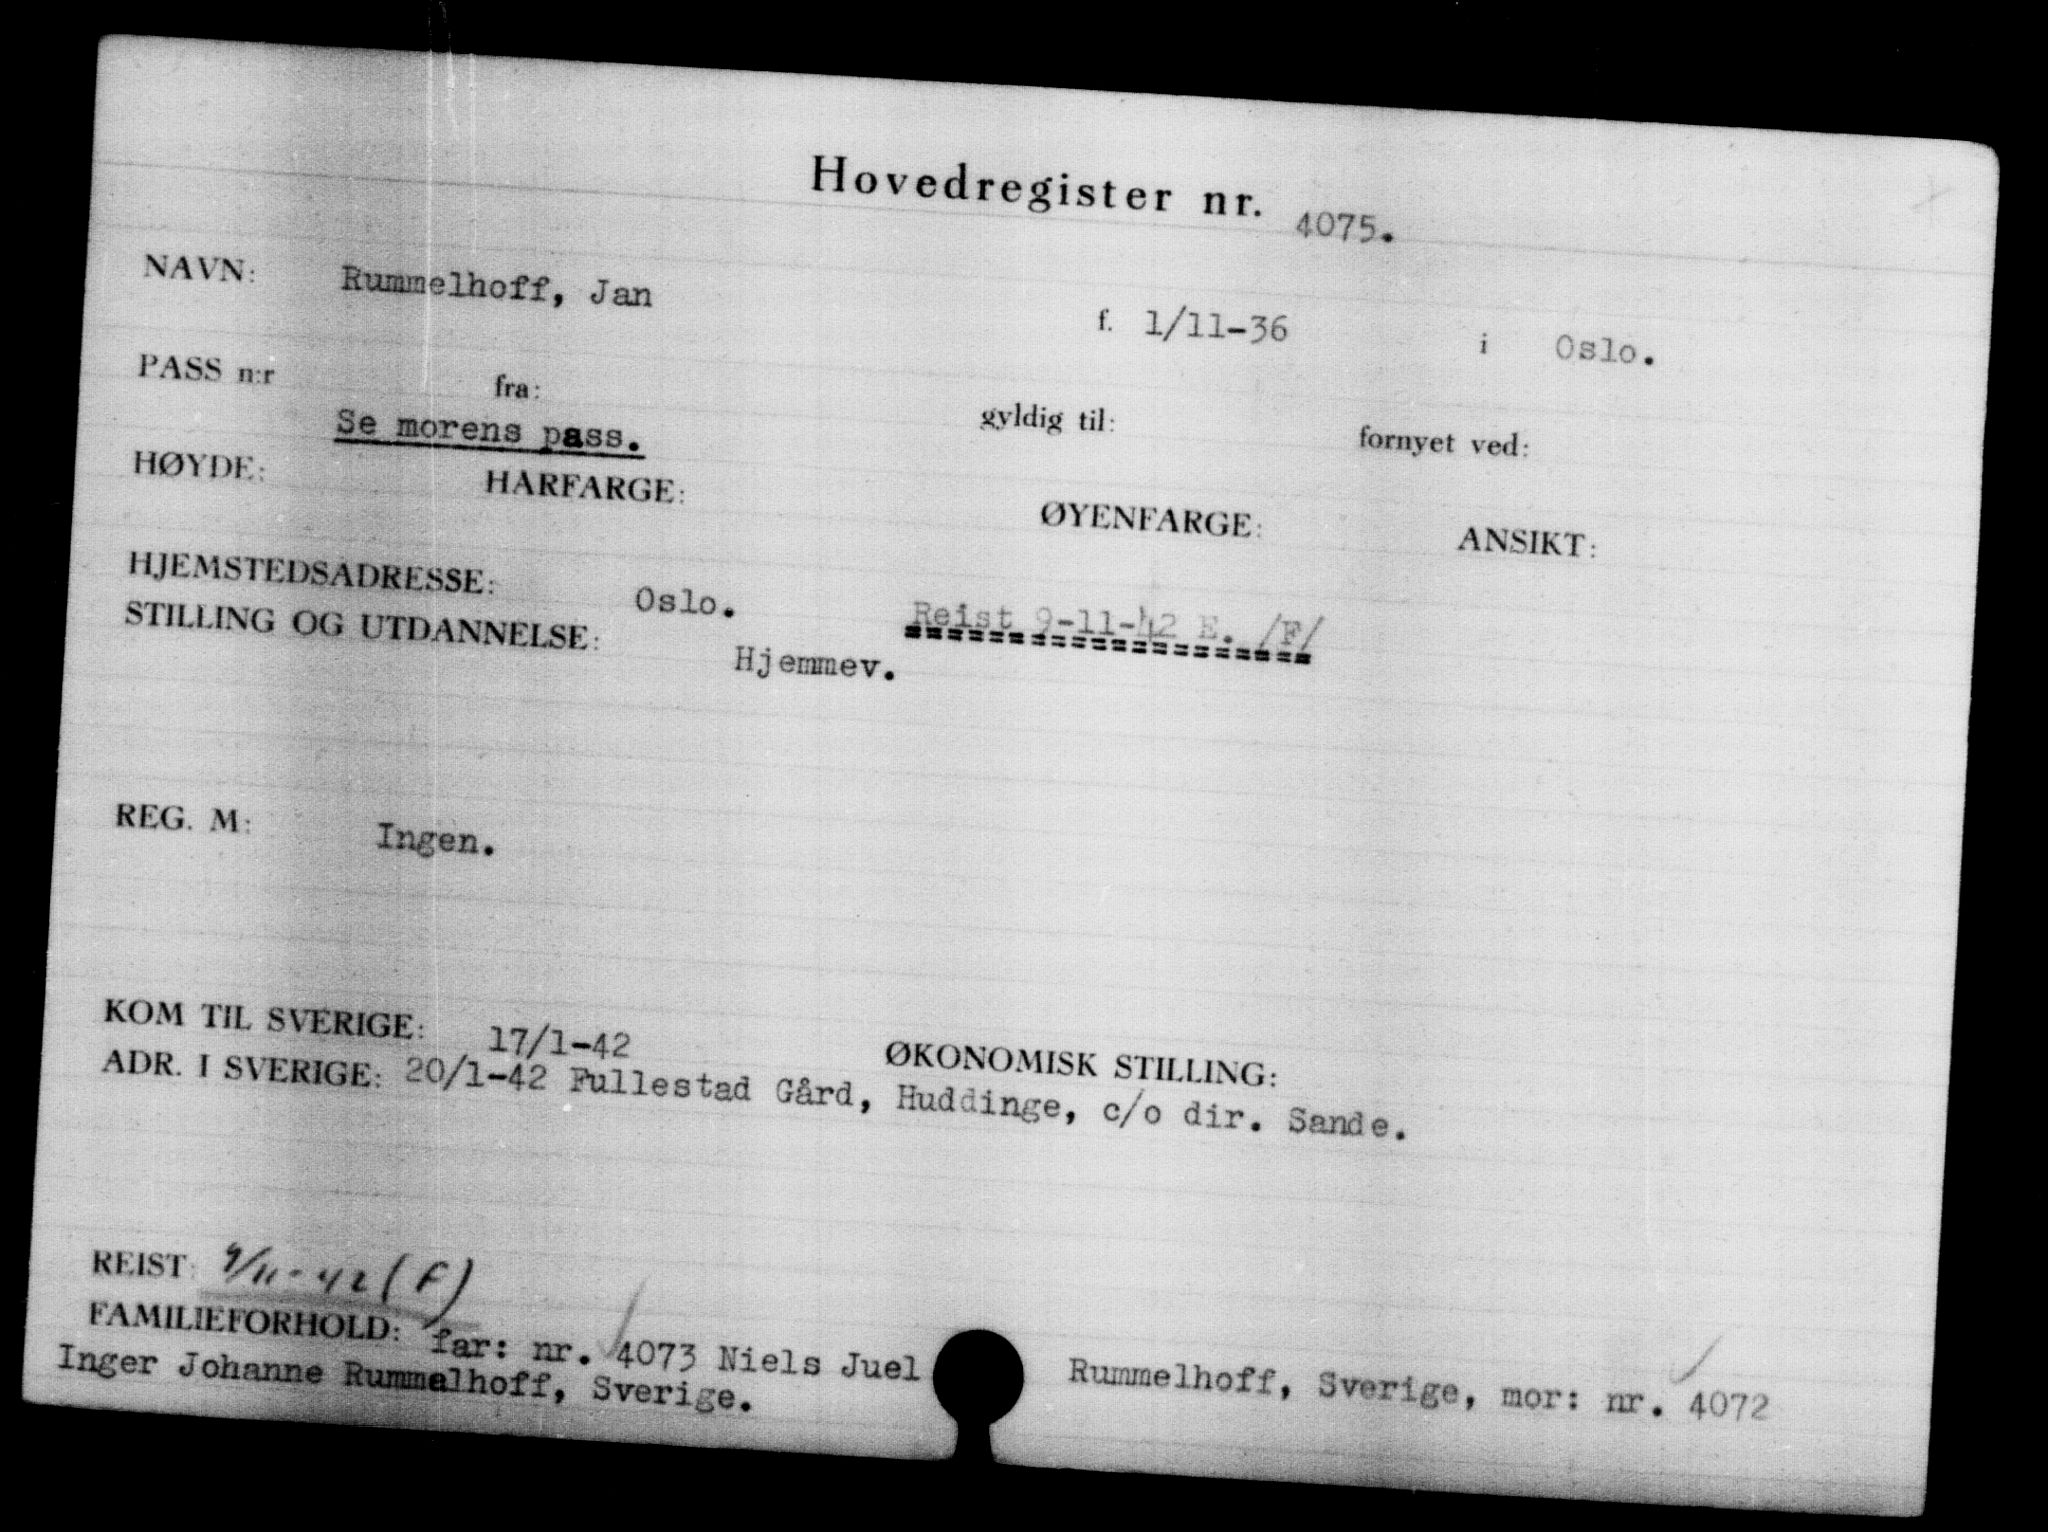 Hovedregister nr. 4075.
NAVN: Rummelhoff, Jan f. 1/11-36 i Oslo.
PASS n:r fra: gyldig til: fornyet ved:
Se morens pass.
HØYDE: HARFARGE: ØYENFARGE: ANSIKT:
HJEMSTEDSADRESSE: Oslo. Reist 9-11-42 E. /F/
STILLING OG UTDANNELSE: Hjemmev.
REG. M: Ingen.
KOM TIL SVERIGE: 17/1-42 ØKONOMISK STILLING:
ADR. I SVERIGE: 20/1-42 Fullestad Gård, Huddinge, c/o dir. Sande.
REIST: 9/11-42 (F)
FAMILIEFORHOLD: far: nr. 4073 Niels Juel Rummelhoff, Sverige, mor: nr. 4072
Inger Johanne Rummelhoff, Sverige.